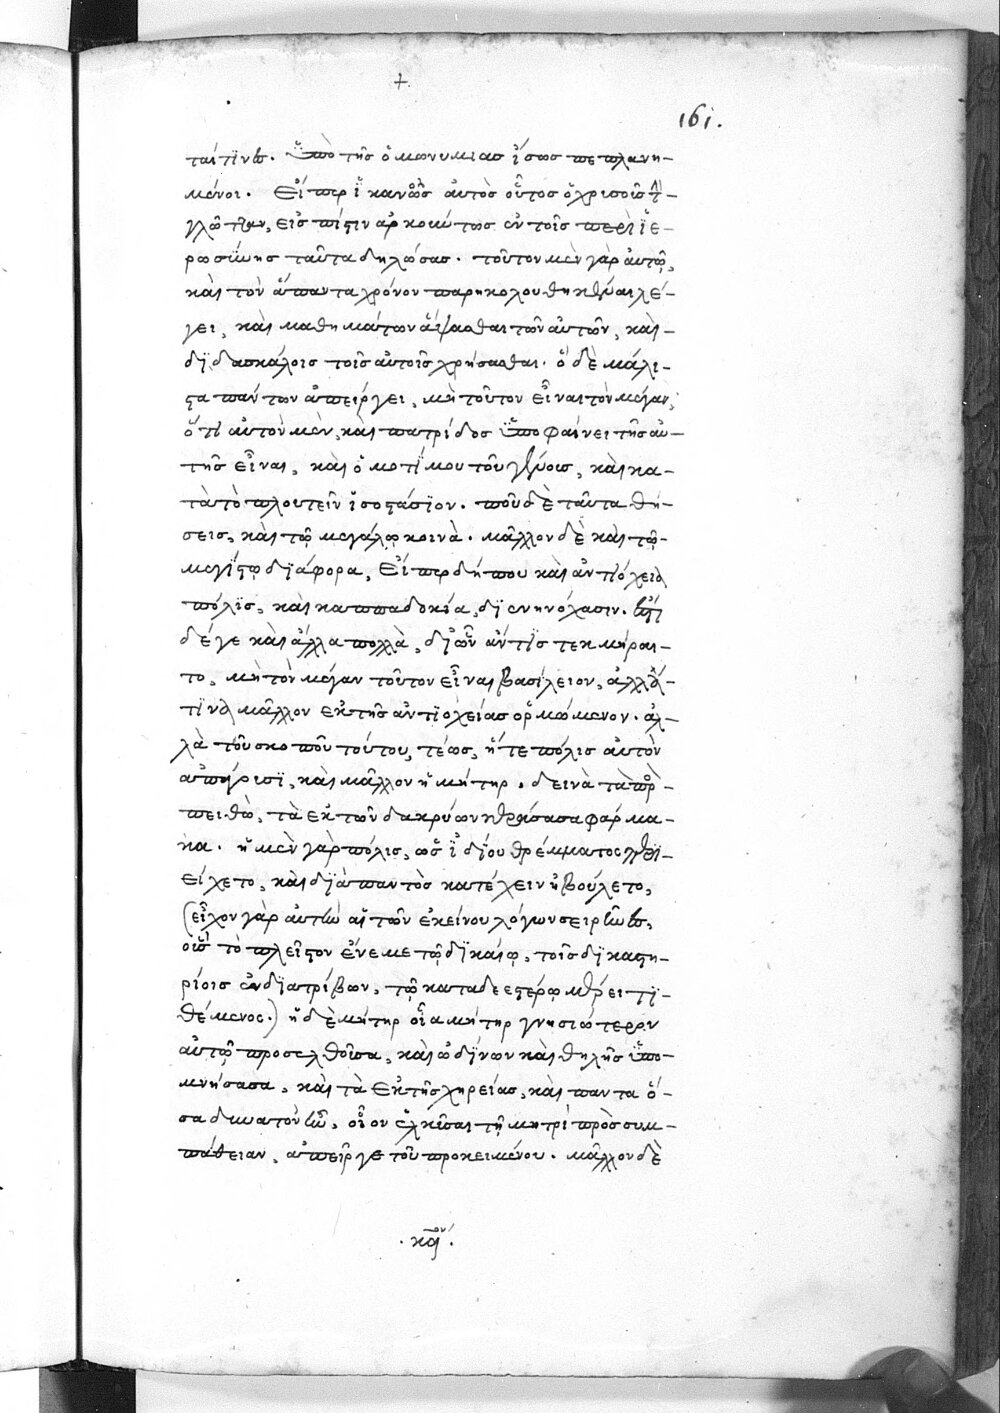 +
161.
ταί τινες. ὑπὸ τῆς ὁμωνυμίας ἴσως πεπλανη-
μένοι. Εἴπερ ἱκανῶς αὐτὸς οὗτος ὁ χρυσοῦς τὴν
γλῶτταν, εἰς πίστιν ἀρκούντως ἐν τοῖς περὶ ἱε-
ρωσύνης ταῦτα δηλώσας. τοῦτον μὲν γὰρ αὐτῷ,
καὶ τὸν ἅπαντα χρόνον παρηκολουθηκέναι λέ-
γει, καὶ μαθημάτων ἅψασθαι τῶν αὐτῶν, καὶ
διδασκάλοις τοῖς αὐτοῖς χρήσασθαι. ὃ δὲ μάλι-
στα πάντων ἀπείργει, μὴ τοῦτον εἶναι τὸν μέγαν,
ὅτι αὐτὸν μὲν, καὶ πατρίδος ὑποφαίνει τῆς αὐ-
τῆς εἶναι, καὶ ὁμοτίμου τοῦ γένους, καὶ κα-
τὰ τὸ πλουτεῖν ἰσοστάσιον. ποῦ δὲ ταῦτα θή-
σεις, καὶ τῷ μεγάλῳ κοινὰ. μᾶλλον δὲ καὶ τῷ
μεγίστῳ διάφορα, Εἴπερ δήπου καὶ ἀντιόχεια
πόλις, καὶ καππαδοκία, διενηνόχασιν. ἔστι
δέ γε καὶ ἄλλα πολλὰ, δι' ὧν ἄν τις τεκμήραι-
το, μὴ τὸν μέγαν τοῦτον εἶναι βασίλειον, ἀλλά
τινα μᾶλλον ἐκ τῆς ἀντιοχείας ὁρμώμενον. ἀλ-
λὰ τοῦ σκοποῦ τούτου, τέως, ἥτε πόλις αὐτὸν
ἀπῄρισι, καὶ μᾶλλον ἡ μήτηρ. δεινὰ τὰ πρὸς
πειθὼ, τὰ ἐκ τῶν δακρύων κεράσασα φάρμα-
κα. ἡ μὲν γὰρ πόλις, ὡς ἰδίου θρέμματος περι-
είχετο, καὶ διαπαντὸς κατέχειν ἠβούλετο,
(εἷλκον γὰρ αὐτὴν αἱ τῶν ἐκείνου λόγων σειρῆνες,
οἷς τὸ πλεῖστον ἔνεμε τῷ δικαίῳ, τοῖς δικαστη-
ρίοις ἐνδιατρίβων, τῷ καταδεεστέρῳ μέρει τι-
θέμενος.) ἡ δὲ μήτηρ οἷα μήτηρ γνησιώτερον
αὐτῷ προσελθοῦσα, καὶ ὠδίνων καὶ θηλῆς ὑπο-
μνήσασα, καὶ τὰ ἐκ τῆς χηρείας, καὶ πάντα ὅ-
σα δυνατὸν ἦν, υἱὸν ἑλκῦσαι τῇ μητρὶ πρὸς συμ-
πάθειαν, ἀπεῖργε τοῦ προκειμένου. μᾶλλον δὲ